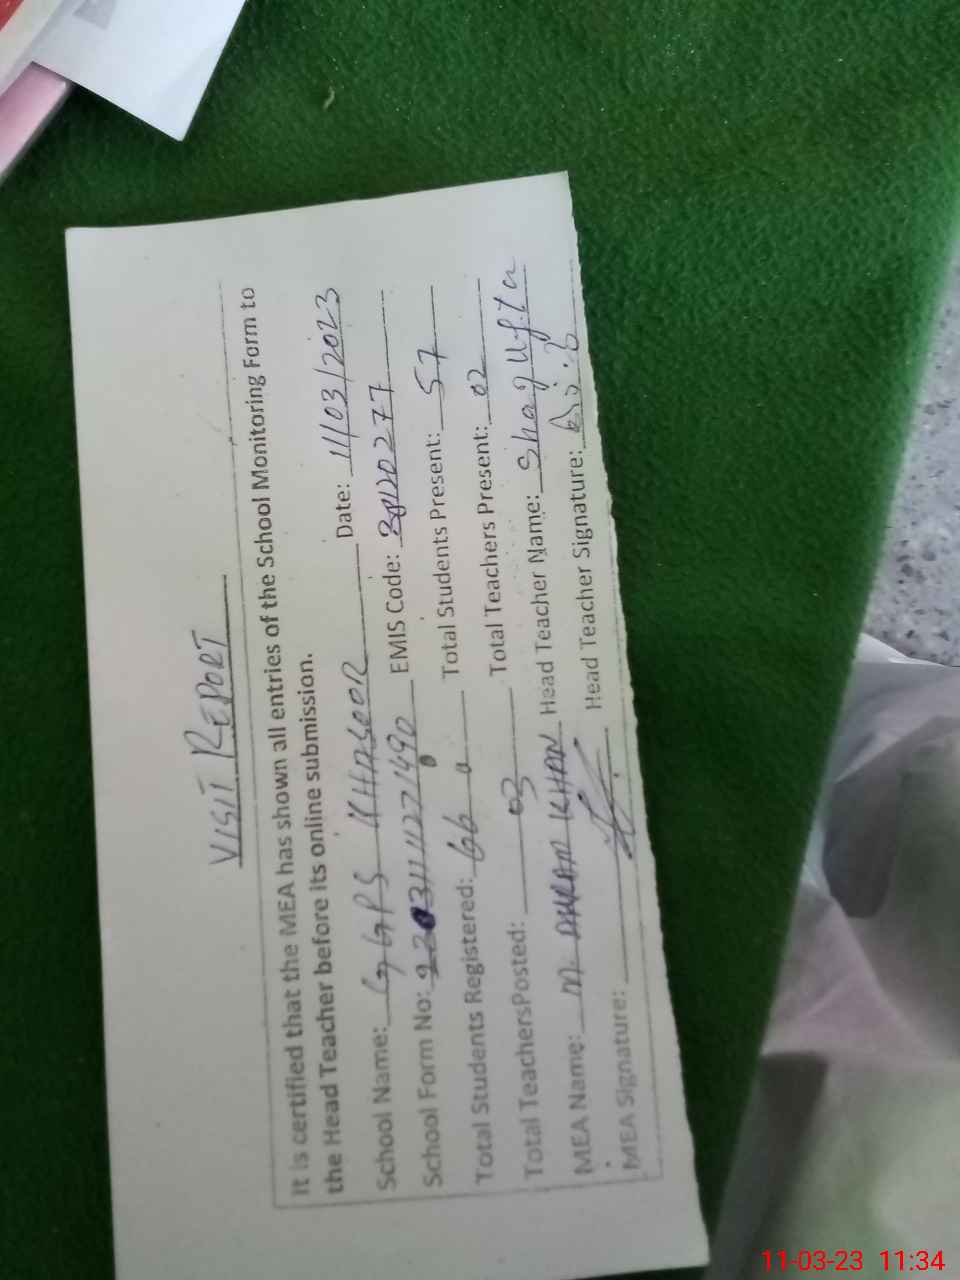 VISIT REPORT
It is certified that the MEA has shown all entries of the School Monitoring Form to
the Head Teacher before its online submission.
School Name: GGPS KHASOOR Date: 11/03/2023
School Form No: EMIS Code:
Total Students Registered: 66 Total Students Present: 57
Total TeachersPosted: 03 Total Teachers Present: 02
MEA Name: M. KHAN Head Teacher Name: Shagufta
MEA Signature: Head Teacher Signature:
11-03-23 11:34